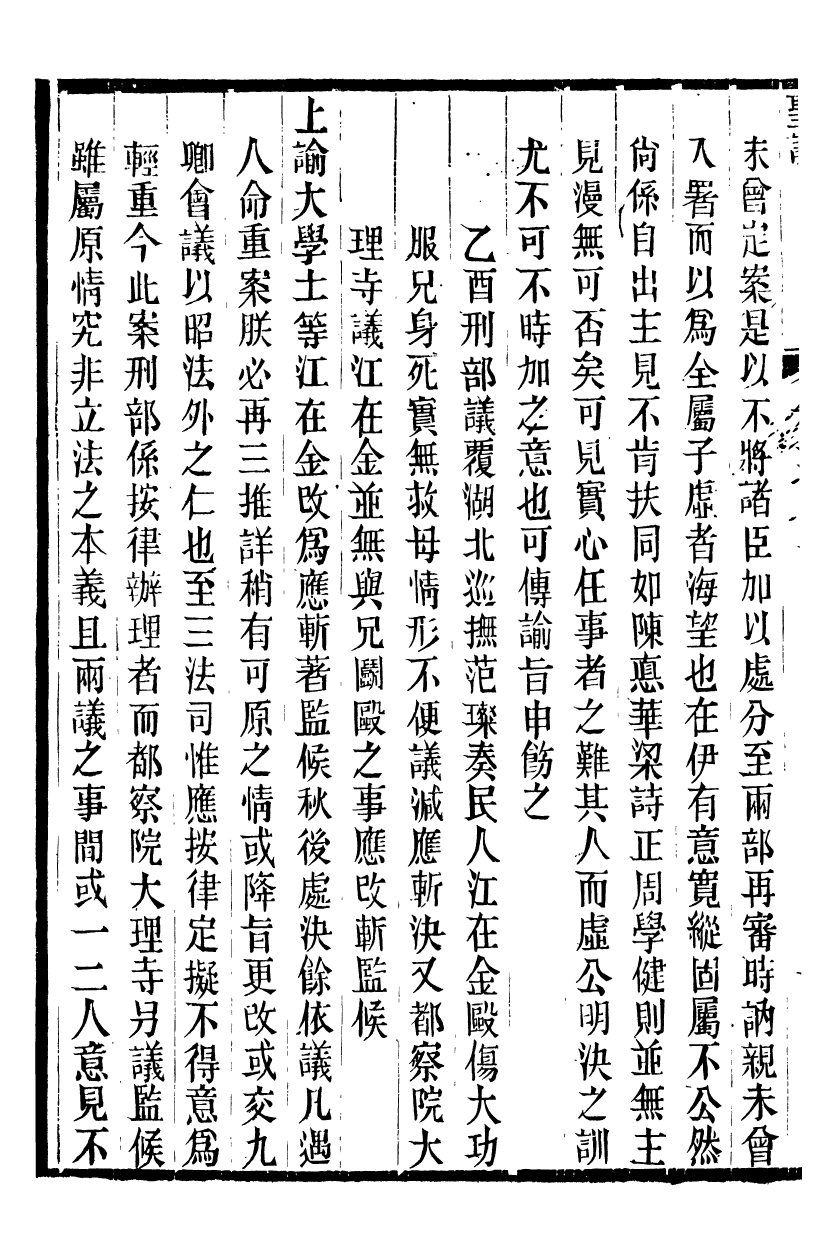 未曾定案是以不將諸臣加以處分至兩部再審時訥親未曾
入署而以爲全屬子虛者海望也在伊有意寬縱固屬不公然
尙係自出主見不肯扶同如陳悳華梁詩正周學健則並無主
見漫無可否矣可見實心任事者之難其人而虛公明決之訓
尤不可不時加之意也可傳諭旨申飭之
乙酉刑部議覆湖北巡撫范璨奏民人江在金毆傷大功
服兄身死實無救母情形不便議減應斬決又都察院大
理寺議江在金並無與兄鬭毆之事應改斬監候
上諭大學士等江在金改爲應斬著監候秋後處決餘依議凡遇
人命重案朕必再三推詳稍有可原之情或降旨更改或交九
卿會議以昭法外之仁也至三法司惟應按律定擬不得意爲
輕重今此案刑部係按律辦理者而都察院大理寺另議監候
雖屬原情究非立法之本義且兩議之事間或一二人意見不